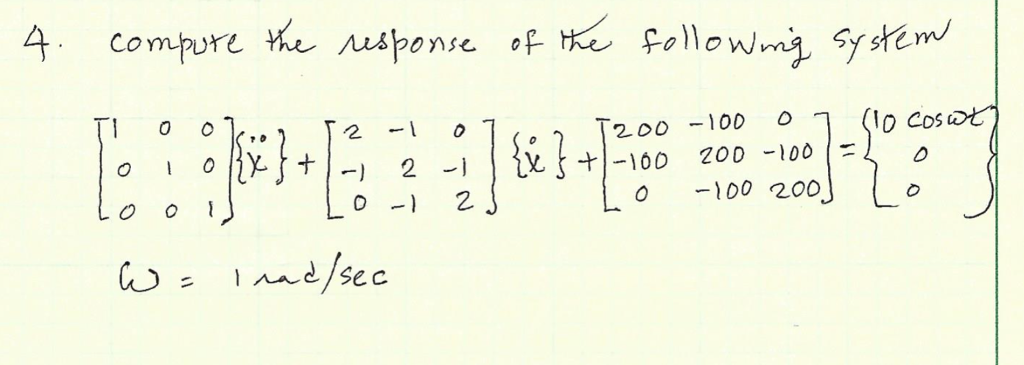 4. compute the response of the following system
[1 0 0; 0 1 0; 0 0 1]{ẍ} + [2 -1 0; -1 2 -1; 0 -1 2]{ẋ} + [200 -100 0; -100 200 -100; 0 -100 200] = {10 cos ωt; 0; 0}
ω = 1 rad/sec